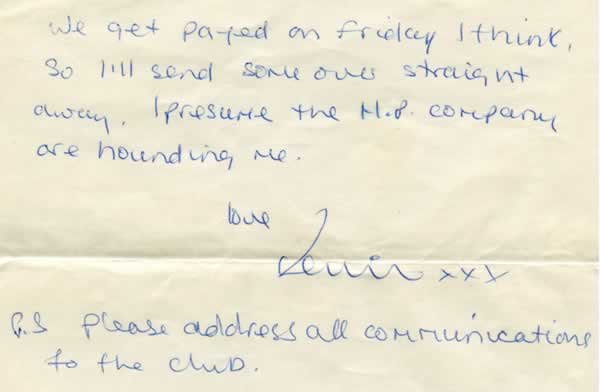 We get payed on Friday I think,
so I'll send some over straight
away. I presume the H.P. company
are hounding me.
love
Kevin xxx
P.S please address all communications
to the club.